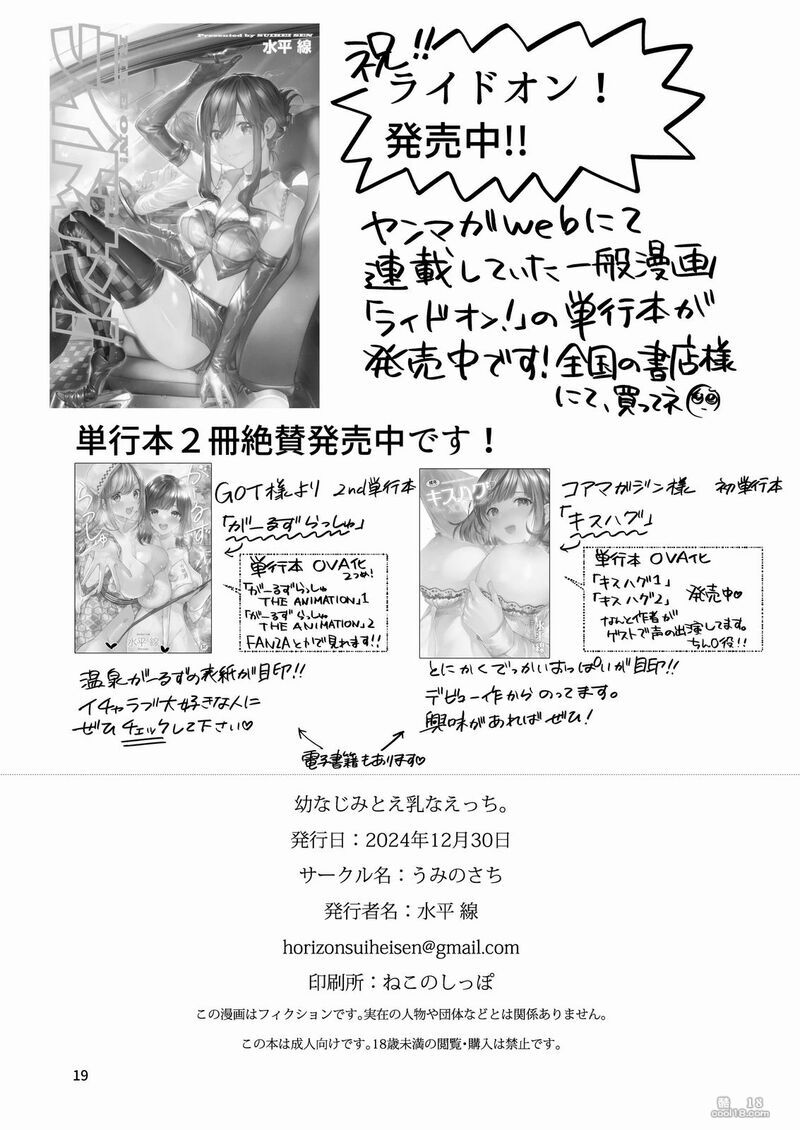 Presented by SUIHEI SEN
水平 線
RIDE ON!
ライドオン!
祝!!
ライドオン！
発売中!!
ヤンマガwebにて
連載していた一般漫画
「ライドオン!」の単行本が
発売中です!全国の書店様
にて、買ってネ
単行本２冊絶賛発売中です！
がーるず
らっしゅ
水平線
GOT様より 2nd単行本
「がーるずらっしゅ」
単行本 OVA化
2つめ!
「がーるずらっしゅ
THE ANIMATION」1
「がーるずらっしゅ
THE ANIMATION」2
FANZAとかで見れます!!
温泉がーるずの表紙が目印!!
イチャラブ大好きな人に
ぜひチェックして下さい♡
キスハグ
水平線
コアマガジン様 初単行本
「キスハグ」
単行本 OVA化
「キスハグ1」
「キスハグ2」 発売中♡
なんと作者が
ゲストで声の出演してます。
ちん○役!!
とにかくでっかいおっぱいが目印!!
デビュー作からのってます。
興味があればぜひ!
電子書籍もあります♡
幼なじみとえ乳なえっち。
発行日：2024年12月30日
サークル名：うみのさち
発行者名：水平 線
horizonsuiheisen@gmail.com
印刷所：ねこのしっぽ
この漫画はフィクションです。実在の人物や団体などとは関係ありません。
この本は成人向けです。18歳未満の閲覧・購入は禁止です。
19
酷 18
cool18.com